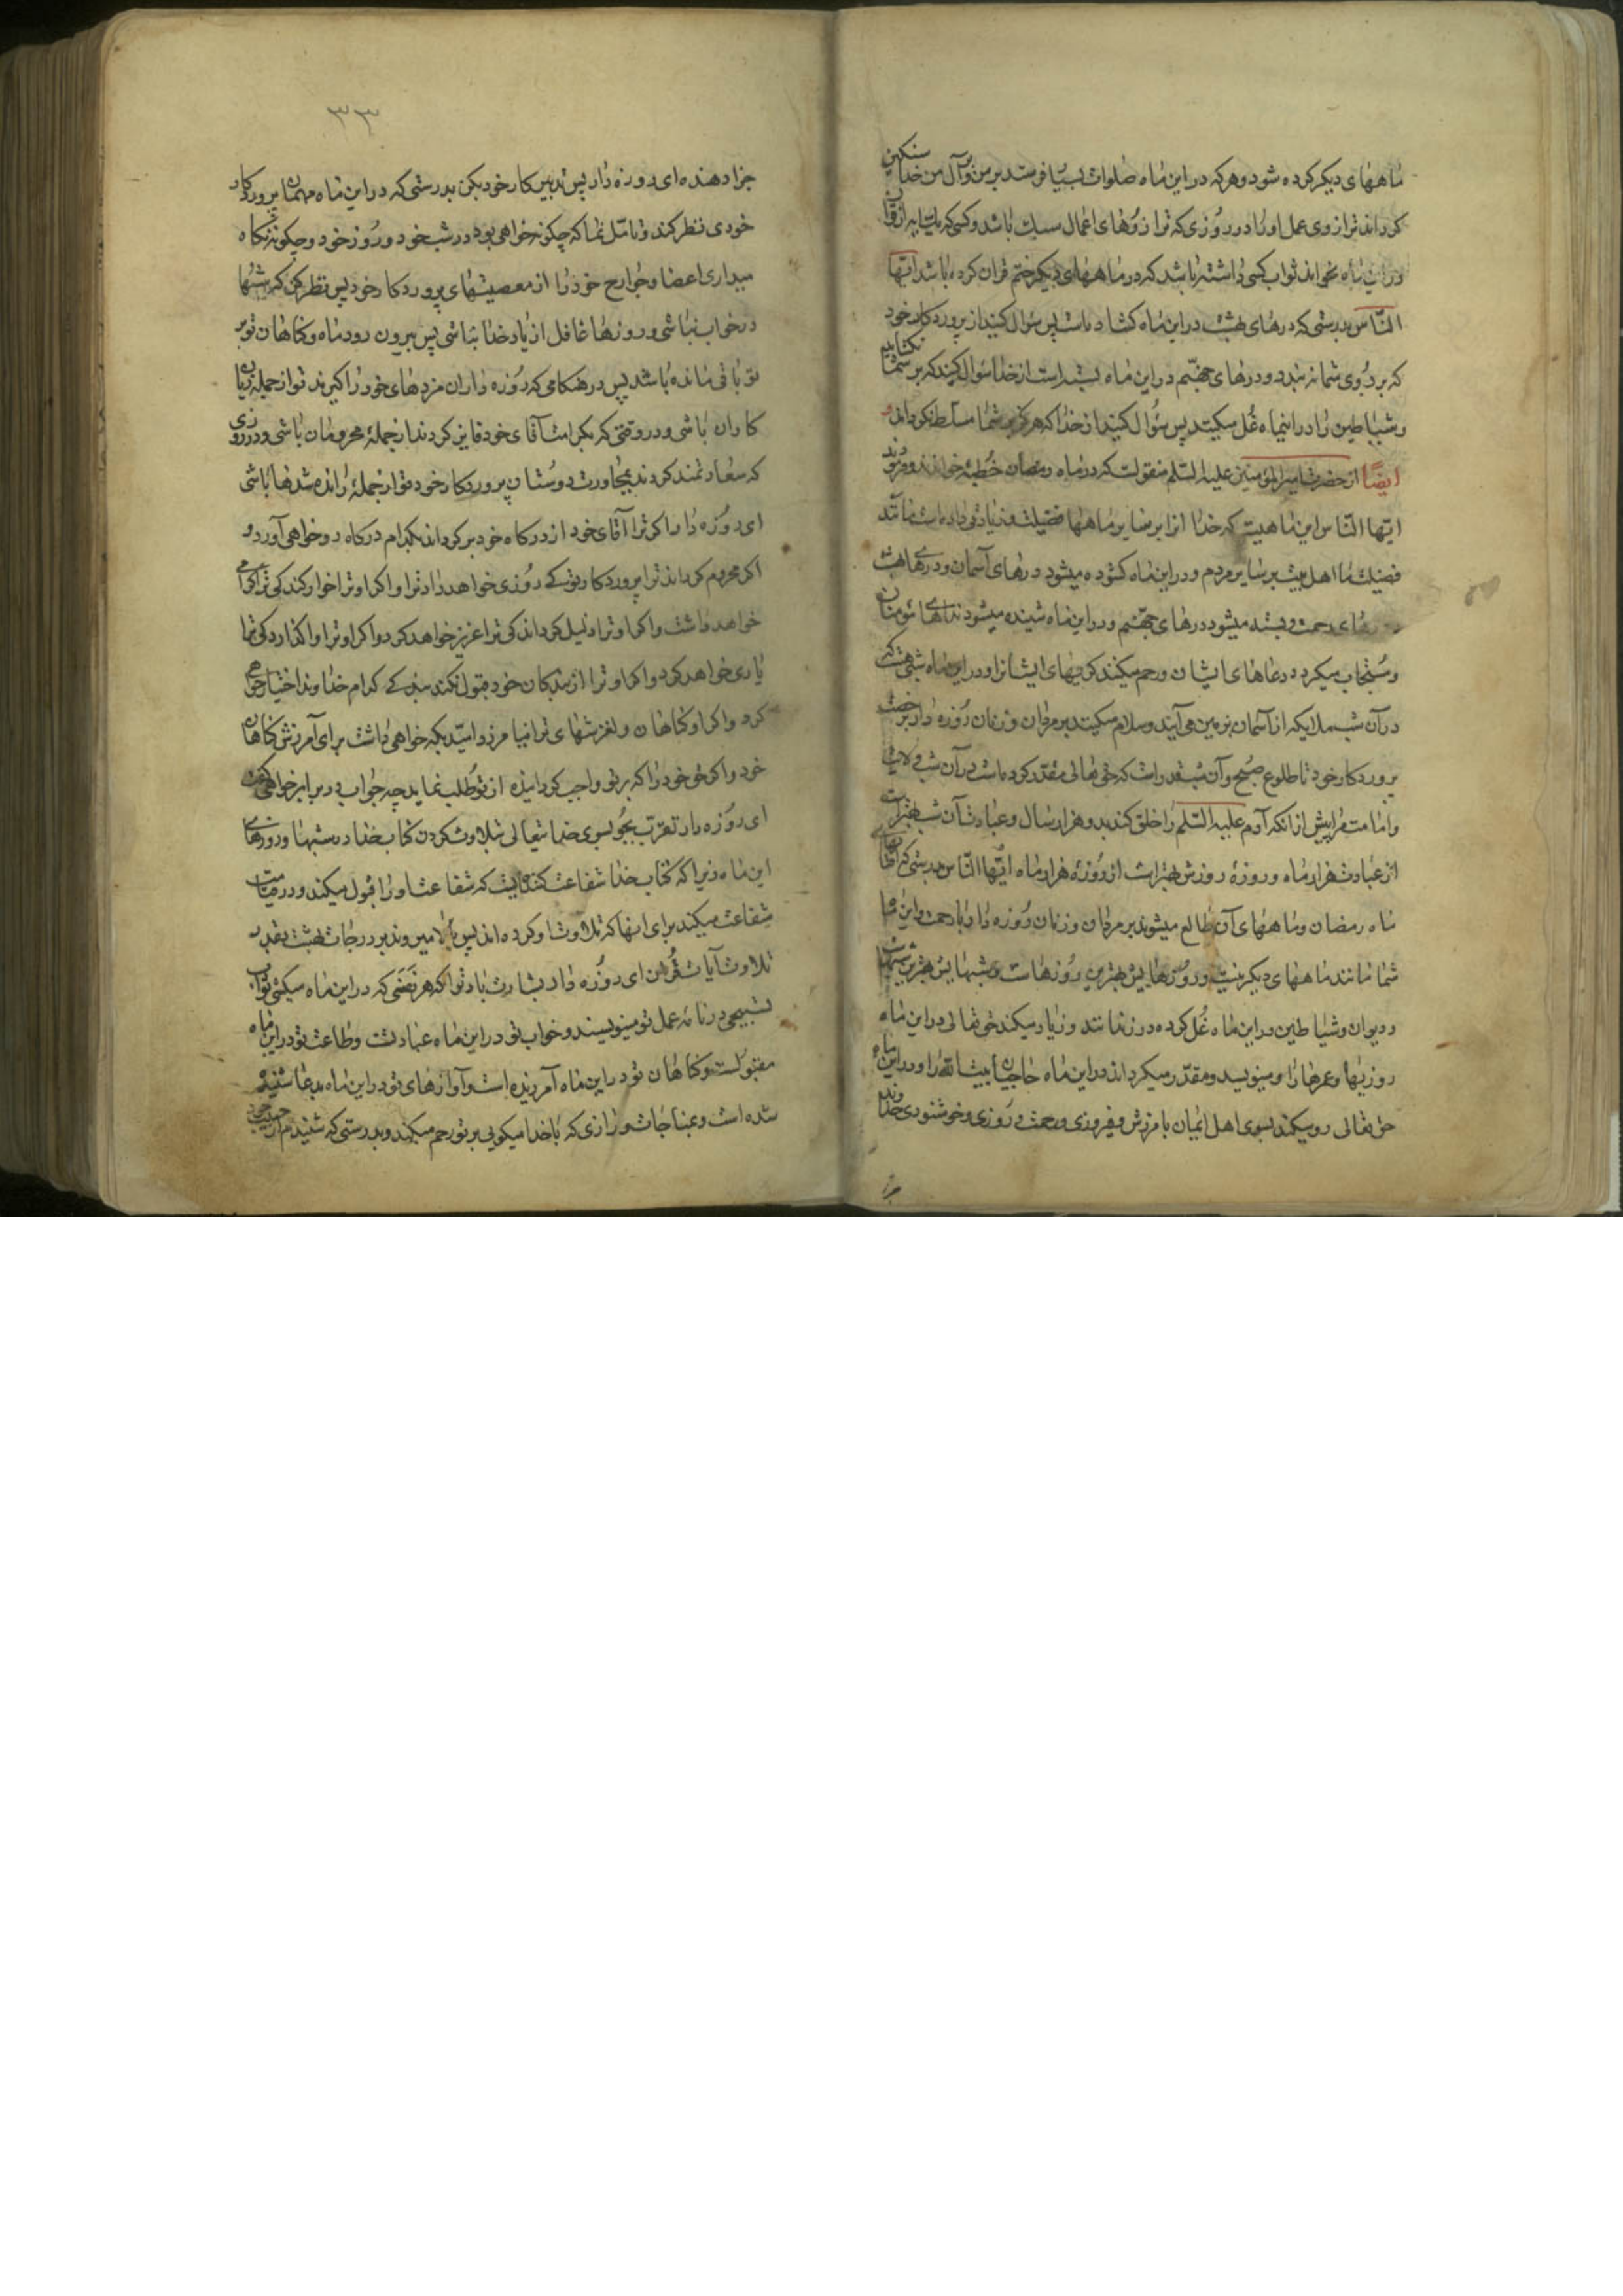 ماههای دیکر کرده شود و هر که در این ماه صلوات بسیار فرستد بر من و بر آل من خدا سنکین
کرداند ترازوی عمل او را در روزی که ترازوهای اعمال سبک باشد و کسی که یک آیه از قرآن
در این ماه بخواند ثواب کسی داشته باشد که در ماههای دیکر ختم قرآن کرده باشد ایّها
النّاس بدرستی که درهای بهشت در این ماه کشاده است پس سؤال کنید از پروردکار خود
که بر روی شما نبندد و درهای جهنّم در این ماه بسته است از خدا سؤال کنید که بر شما نکشاید
و شیاطین را در اینماه غُل میکنند پس سؤال کنید از خدا که هرکز بر شما مسلّط نکرداند و
ایضًا از حضرت امیرالمؤمنین علیه السّلم منقولست که در ماه رمضان خُطبهٔ خواندند و فرمودند
ایّها النّاس این ماهیست که خدا آنرا بر سایر ماهها فضیلت و زیادتی داده است مانند
فضیلت ما اهل بیت بر سایر مردم و در این ماه کشوده میشود درهای آسمان و درهای بهشت
و درهای رحمت و بسته میشود درهای جهنّم و در این ماه شنیده میشود نداهای مؤمنان
و مُستجاب میکردد دعاهای ایشان و رحم میکنند کریهای ایشانرا و در این ماه شبی هست که
در آن شب ملایکه از آسمان بزمین می آیند و سلام میکنند بر مردان و زنان رُوزه دار برخصت
پروردکار خود تا طلوع صُبح و آن شب قدر است که حق تعالی مقدّر کرده است در آن شب ولایت
و امامت مرا پیش از آنکه آدم علیه السّلم را خلق کند بدو هزار سال و عبادت آن شب بهتر است
از عبادت هزار ماه و روزهٔ روزش بهتر است از رُوزهٔ هزار ماه ایُّها النّاس بدرستی که آفتابهای
ماه رمضان و ماههای آن طالع میشوند بر مردان و زنان رُوزه دار با رحمت و این ماه
شما مانند ماههای دیکر نیست و روزهایش بهترین رُوزهاست و شبهایش بهترین شبها
و دیوان و شیاطین در این ماه غُل کرده در زندانند و زیاد میکند حق تعالی در این ماه
روزیها و عمرها را و مینویسد و مقدّر میکرداند در این ماه حاجیان بیت الله را و در این ماه
حق تعالی رو میکند بسوی اهل ایمان بآمرزش و فیروزی و رحمت و رُوزی و خوشنودی خداوند
جزا
۳۳
جزا دهنده ای روزه دار پس تدبیر کار خود بکن بدرستی که در این ماه مهمان پروردکار
خودی نظر کن و تامّل نما که چکونه خواهی بود در شب خود و رُوز خود و چکونه نکاه
میداری اعضا و جوارح خود را از معصیتهای پروردکار خود پس نظر کن که شبها
در خواب نباشی و روزها غافل از یاد خدا نباشی پس بیرون رود ماه و کناهان تو بر
تو باقی مانده باشد پس در هنکامی که رُوزه داران مزدهای خود را کیرند تو از جمله زیان
کاران باشی و در وقتی که بکرامت آقای خود فایز کردند از جملهٔ محرومان باشی و در روزی
که سعادتمند کردند بمجاورت دوستان پروردکار خود تو از جملهٔ رانده شدها باشی
ای رُوزه دار اکر ترا آقای خود از درکاه خود برکرداند بکدام درکاه رو خواهی آورد و
اکر محروم کرداند ترا پروردکار تو که رُوزی خواهد داد ترا و اکر او ترا خوار کند کی ترا کرامی
خواهد داشت و اکر او ترا ذلیل کرداند کی ترا عزیز خواهد کرد و اکر او ترا واکذارد کی ترا
یاری خواهد کرد و اکر او ترا از بندکان خود قبول نکند بندکی کدام خداوند اختیار خواهی
کرد و اکر او کناهان و لغزشهای ترا نیامرزد امّید بکه خواهی داشت برای آمرزش کناهان
خود و اکر حق خود را که بر تو واجب کردانیده از تو طلب نماید چه جواب در برابر خواهی کفت
ای رُوزه دار تقرّب بجُو بسوی خدایتعالی بتلاوت کردن کتاب خدا در شبها و روزهای
این ماه زیرا که کتاب خدا شفاعت کننده ایست که شفاعت او را قبول میکنند و در قیامت
شفاعت میکند برای آنها که تلاوت او کرده اند پس بالا میروند بر درجات بهشت بقدر
تلاوت آیات قُرآن ای روزه دار بشارت باد ترا که هر نَفَسَی که در این ماه میکشی ثواب
تسبیحی در نامه عمل تو مینویسند و خواب تو در این ماه عبادتست و طاعت تو در این ماه
مقبولست و کناهان تو در این ماه آمرزیده است و آوازهای تو در این ماه بدعا شنیده
شده است و بمناجات و رازی که با خدا میکویی بر تو رحم میکند و بدرستی که شنیدم از حبیب خود